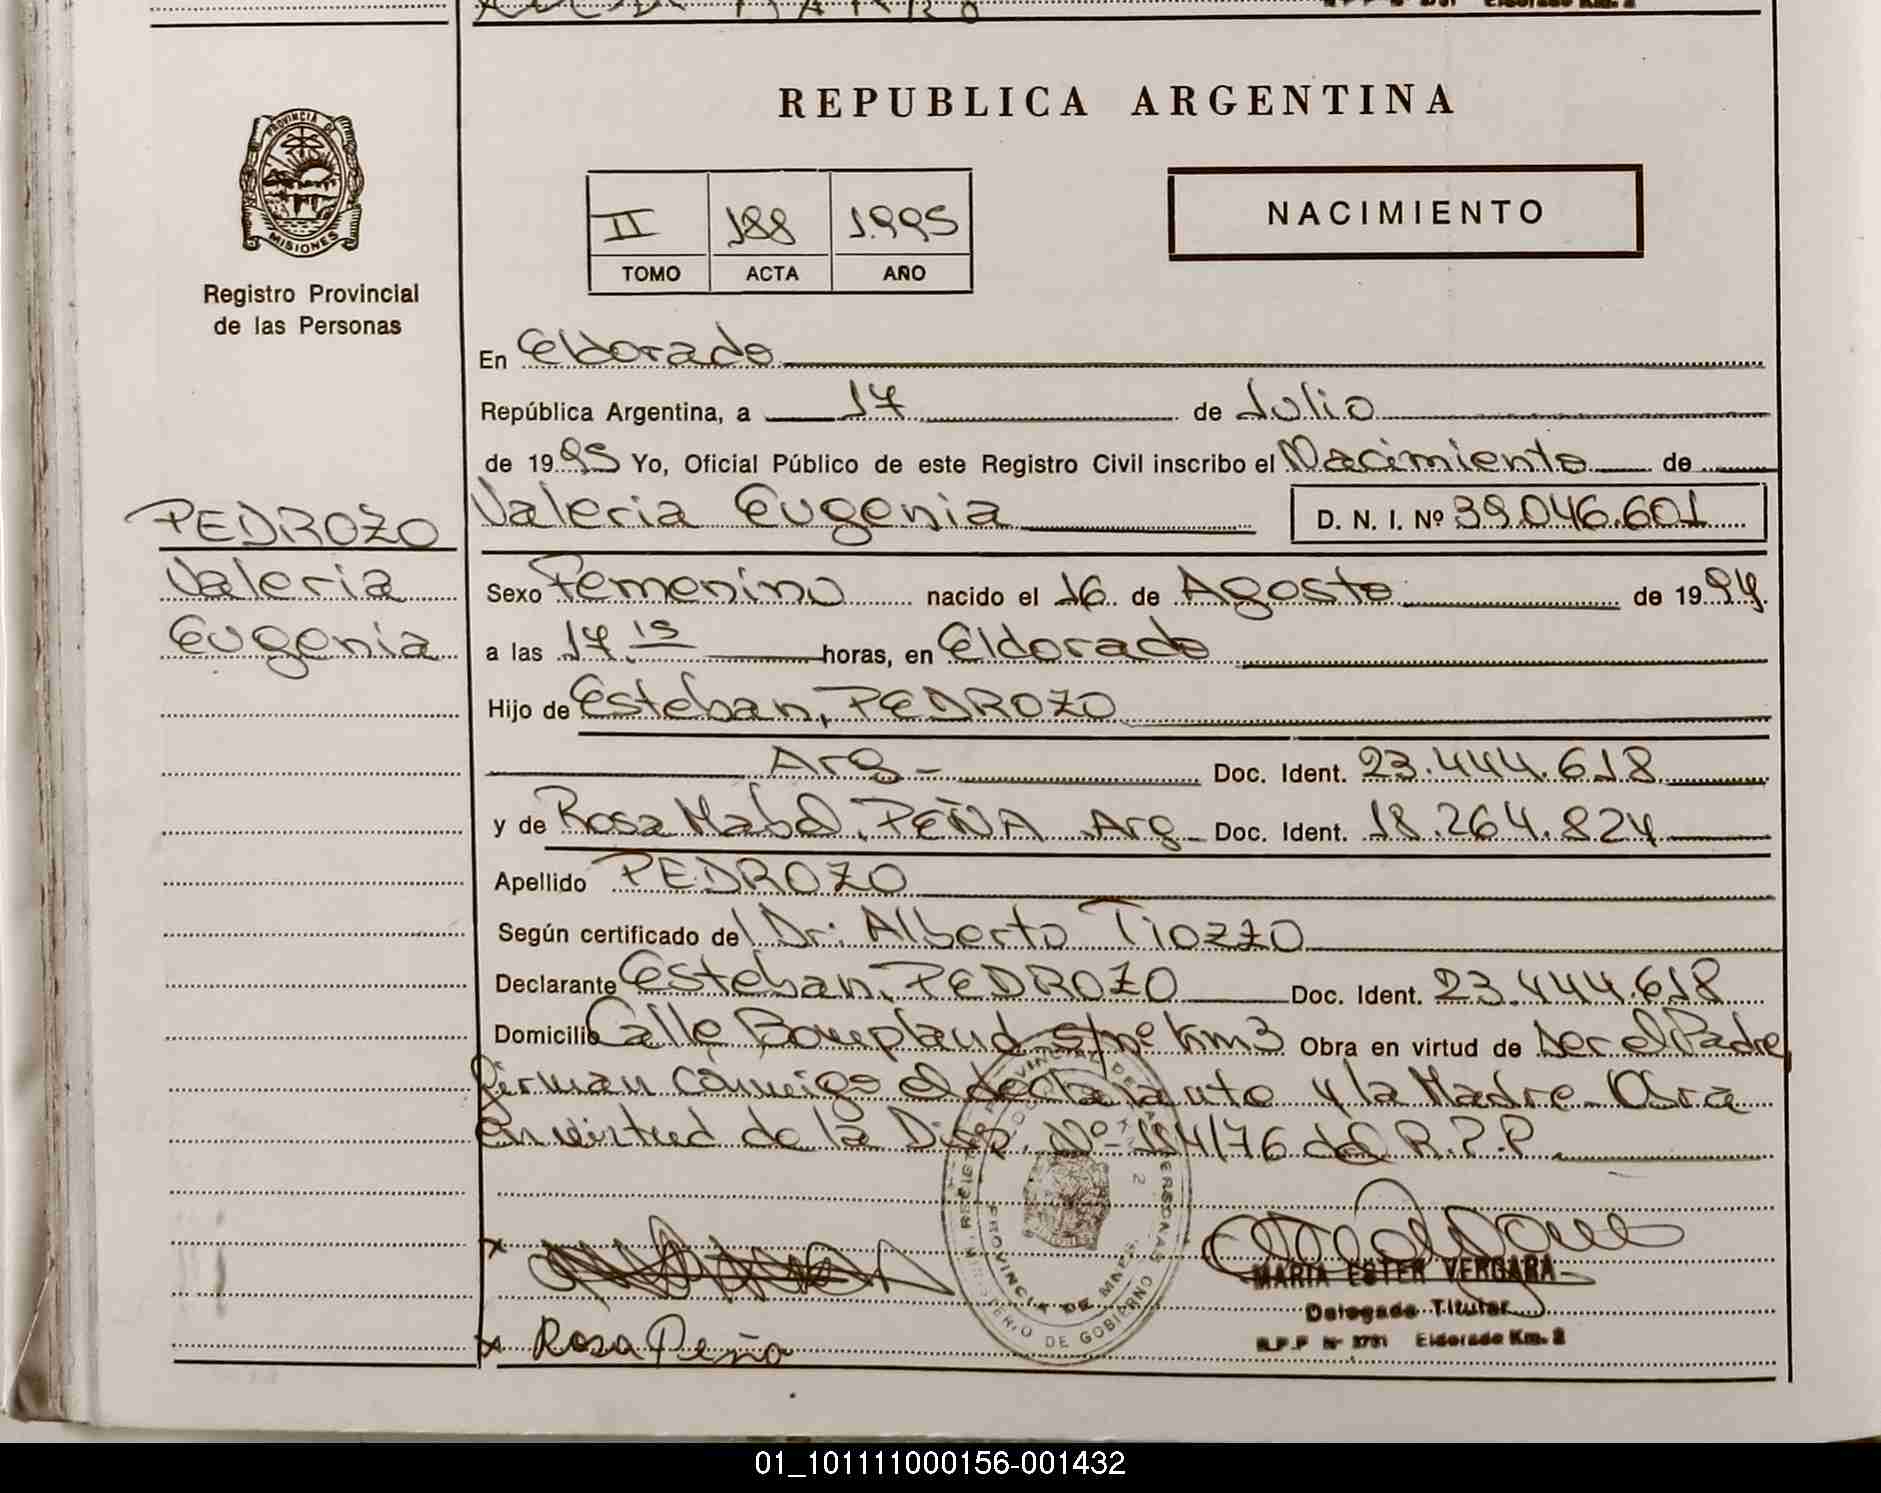 REPUBLICA ARGENTINA
PROVINCIA DE
MISIONES
Registro Provincial
de las Personas
II 188 1995
TOMO ACTA AÑO
NACIMIENTO
En Eldorado
República Argentina, a 17 de Julio
de 1995 Yo, Oficial Público de este Registro Civil inscribo el Nacimiento de
PEDROZO
Valeria
Eugenia
Valeria Eugenia D. N. I. Nº 39.046.601
Sexo Femenino nacido el 16 de Agosto de 1994.
a las 17.15 horas, en Eldorado
Hijo de Esteban, PEDROZO
Arg - Doc. Ident. 23.444.618
y de Rosa Mabel, PEÑA Arg- Doc. Ident. 18.264.824
Apellido PEDROZO
Según certificado del Dr. Alberto Tiozzo
Declarante Esteban, PEDROZO Doc. Ident. 23.444.618
Domicilio Calle Bompland s/nº Km3 Obra en virtud de ser el Padre,
firman conmigo el declarante y la Madre - Obra
en virtud de la Disp. Nº 114/76 del R.P.P.
PROVINCIA DE MNES.
MINISTERIO DE GOBIERNO
MARIA ESTER VERGARA
Delegada Titular
R.P.P Nº 3731 Eldorado Km. 2
x
x Rosa Peña
01_101111000156-001432